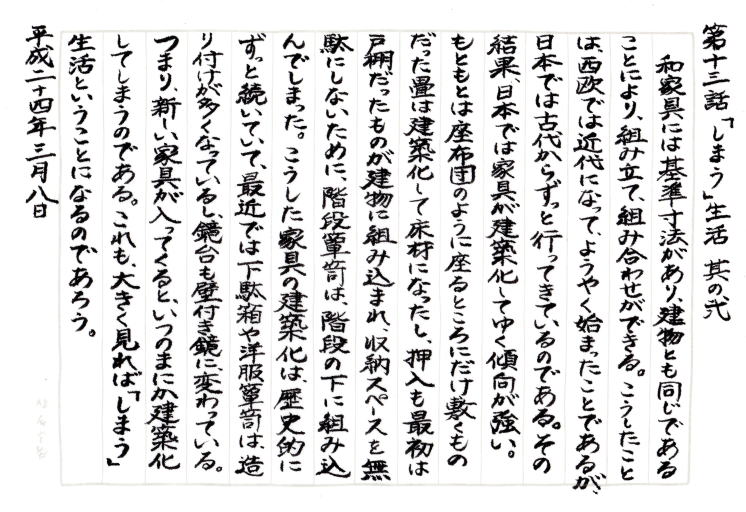 第十三話「しまう」生活 其の弐
和家具には基準寸法があり、建物とも同じである
ことにより、組み立て、組み合わせができる。こうしたこと
は、西欧では近代になって、ようやく始まったことであるが、
日本では古代からずっと行ってきているのである。その
結果、日本では家具が建築化してゆく傾向が強い。
もともとは座布団のように座るところにだけ敷くもの
だった畳は建築化して床材になったし、押入も最初は
戸棚だったものが建物に組み込まれ、収納スペースを無
駄にしないために、階段箪笥は、階段の下に組み込
んでしまった。こうした家具の建築化は、歴史的に
ずっと続いていて、最近では下駄箱や洋服箪笥は、造
り付けが多くなっているし、鏡台も壁付き鏡に変わっている。
つまり、新しい家具が入ってくると、いつのまにか建築化
してしまうのである。これも、大きく見れば「しまう」
生活ということになるのであろう。
平成二十四年三月八日